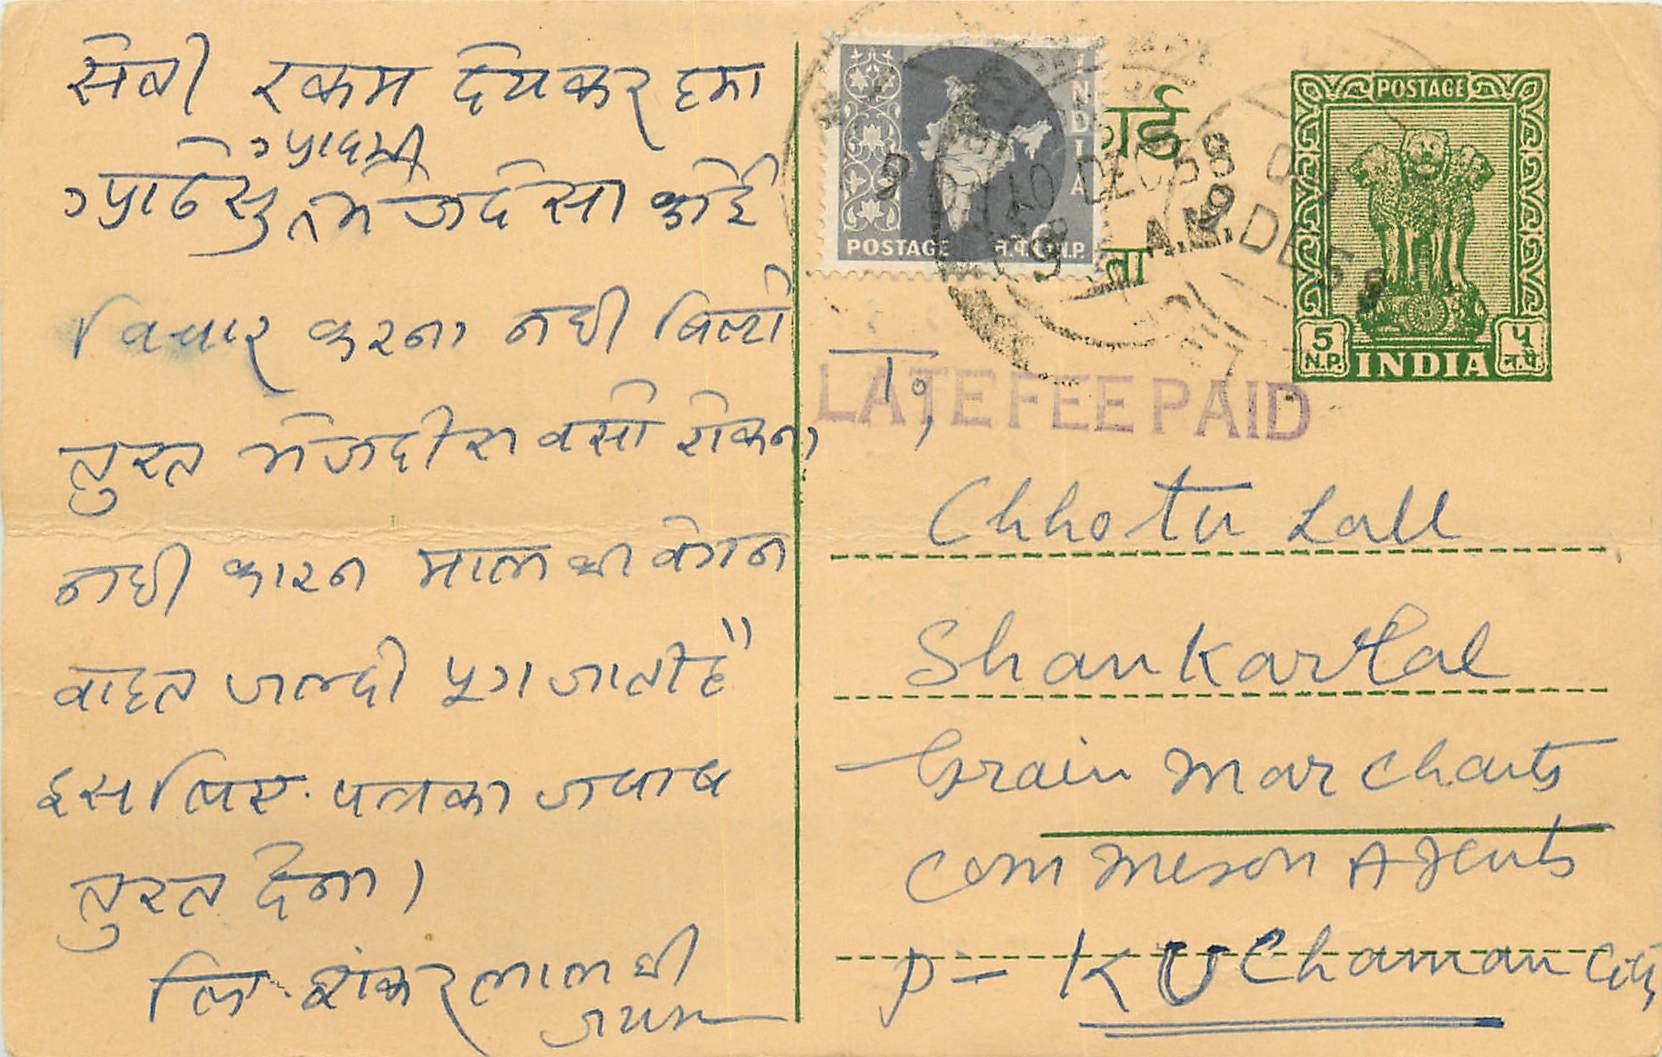 सेबी रकम देयकर हमा
आदमी
आढेसु तो भेजदेसा कोई
विचार करना नही बिल्टी
तुरत भेजदीरावसो रोकना
नही कारन माल की वेगन
बाहत जल्दी पुग जाती है"
इस लिए पत्र का जवाब
तुरत देना।
लि. शंकरलाल घी
कार्ड
ता
INDIA
POSTAGE न.पै. 6 N.P.
POSTAGE
5 N.P. INDIA ५ न.पै.
10 DEC 58
9 A.M.
DE 58
LATE FEE PAID
To,
Chhotu Lall
Shankarlal
Grain Marchants
Commeson Agents
P= KUChaman City